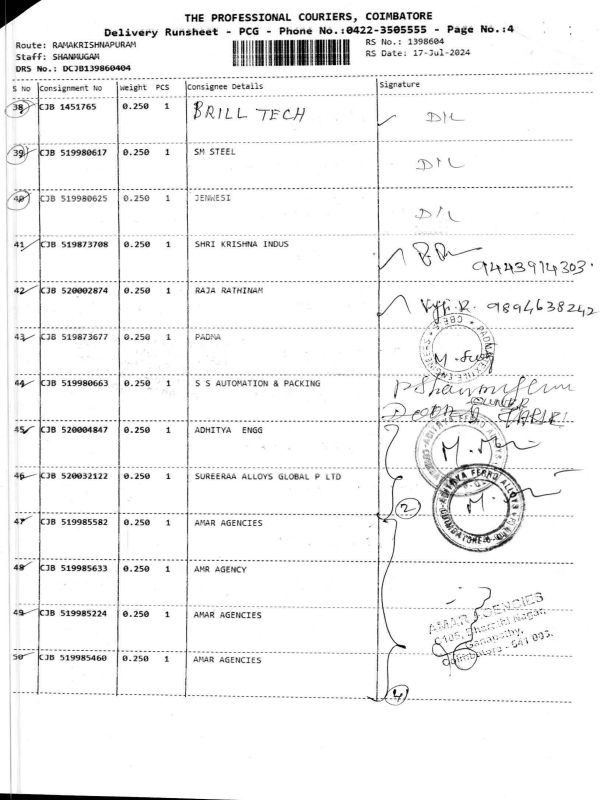 THE PROFESSIONAL COURIERS, COIMBATORE
Delivery Runsheet - PCG - Phone No.:0422-3505555 - Page No.:4
Route: RAMAKRISHNAPURAM RS No.: 1398604
Staff: SHANMUGAM RS Date: 17-Jul-2024
DRS No.: DCJB139860404
S No Consignment No Weight PCS Consignee Details Signature
38 CJB 1451765 0.250 1 BRILL TECH D/L
39 CJB 519980617 0.250 1 SM STEEL D/L
40 CJB 519980625 0.250 1 JENWESI D/L
41 CJB 519873708 0.250 1 SHRI KRISHNA INDUS
9443914303
42 CJB 520002874 0.250 1 RAJA RATHINAM 9894638242
43 CJB 519873677 0.250 1 PADMA
44 CJB 519980663 0.250 1 S S AUTOMATION & PACKING P Shanmugam
45 CJB 520004847 0.250 1 ADHITYA ENGG
46 CJB 520032122 0.250 1 SUREERAA ALLOYS GLOBAL P LTD
ADITHYA FERRO ALLOYS
COIMBATORE-6
2
47 CJB 519985582 0.250 1 AMAR AGENCIES
48 CJB 519985633 0.250 1 AMR AGENCY
49 CJB 519985224 0.250 1 AMAR AGENCIES
AMAR AGENCIES
C105, Bharathi Nagar
Ganapathy,
Coimbatore - 641 006.
50 CJB 519985460 0.250 1 AMAR AGENCIES
4